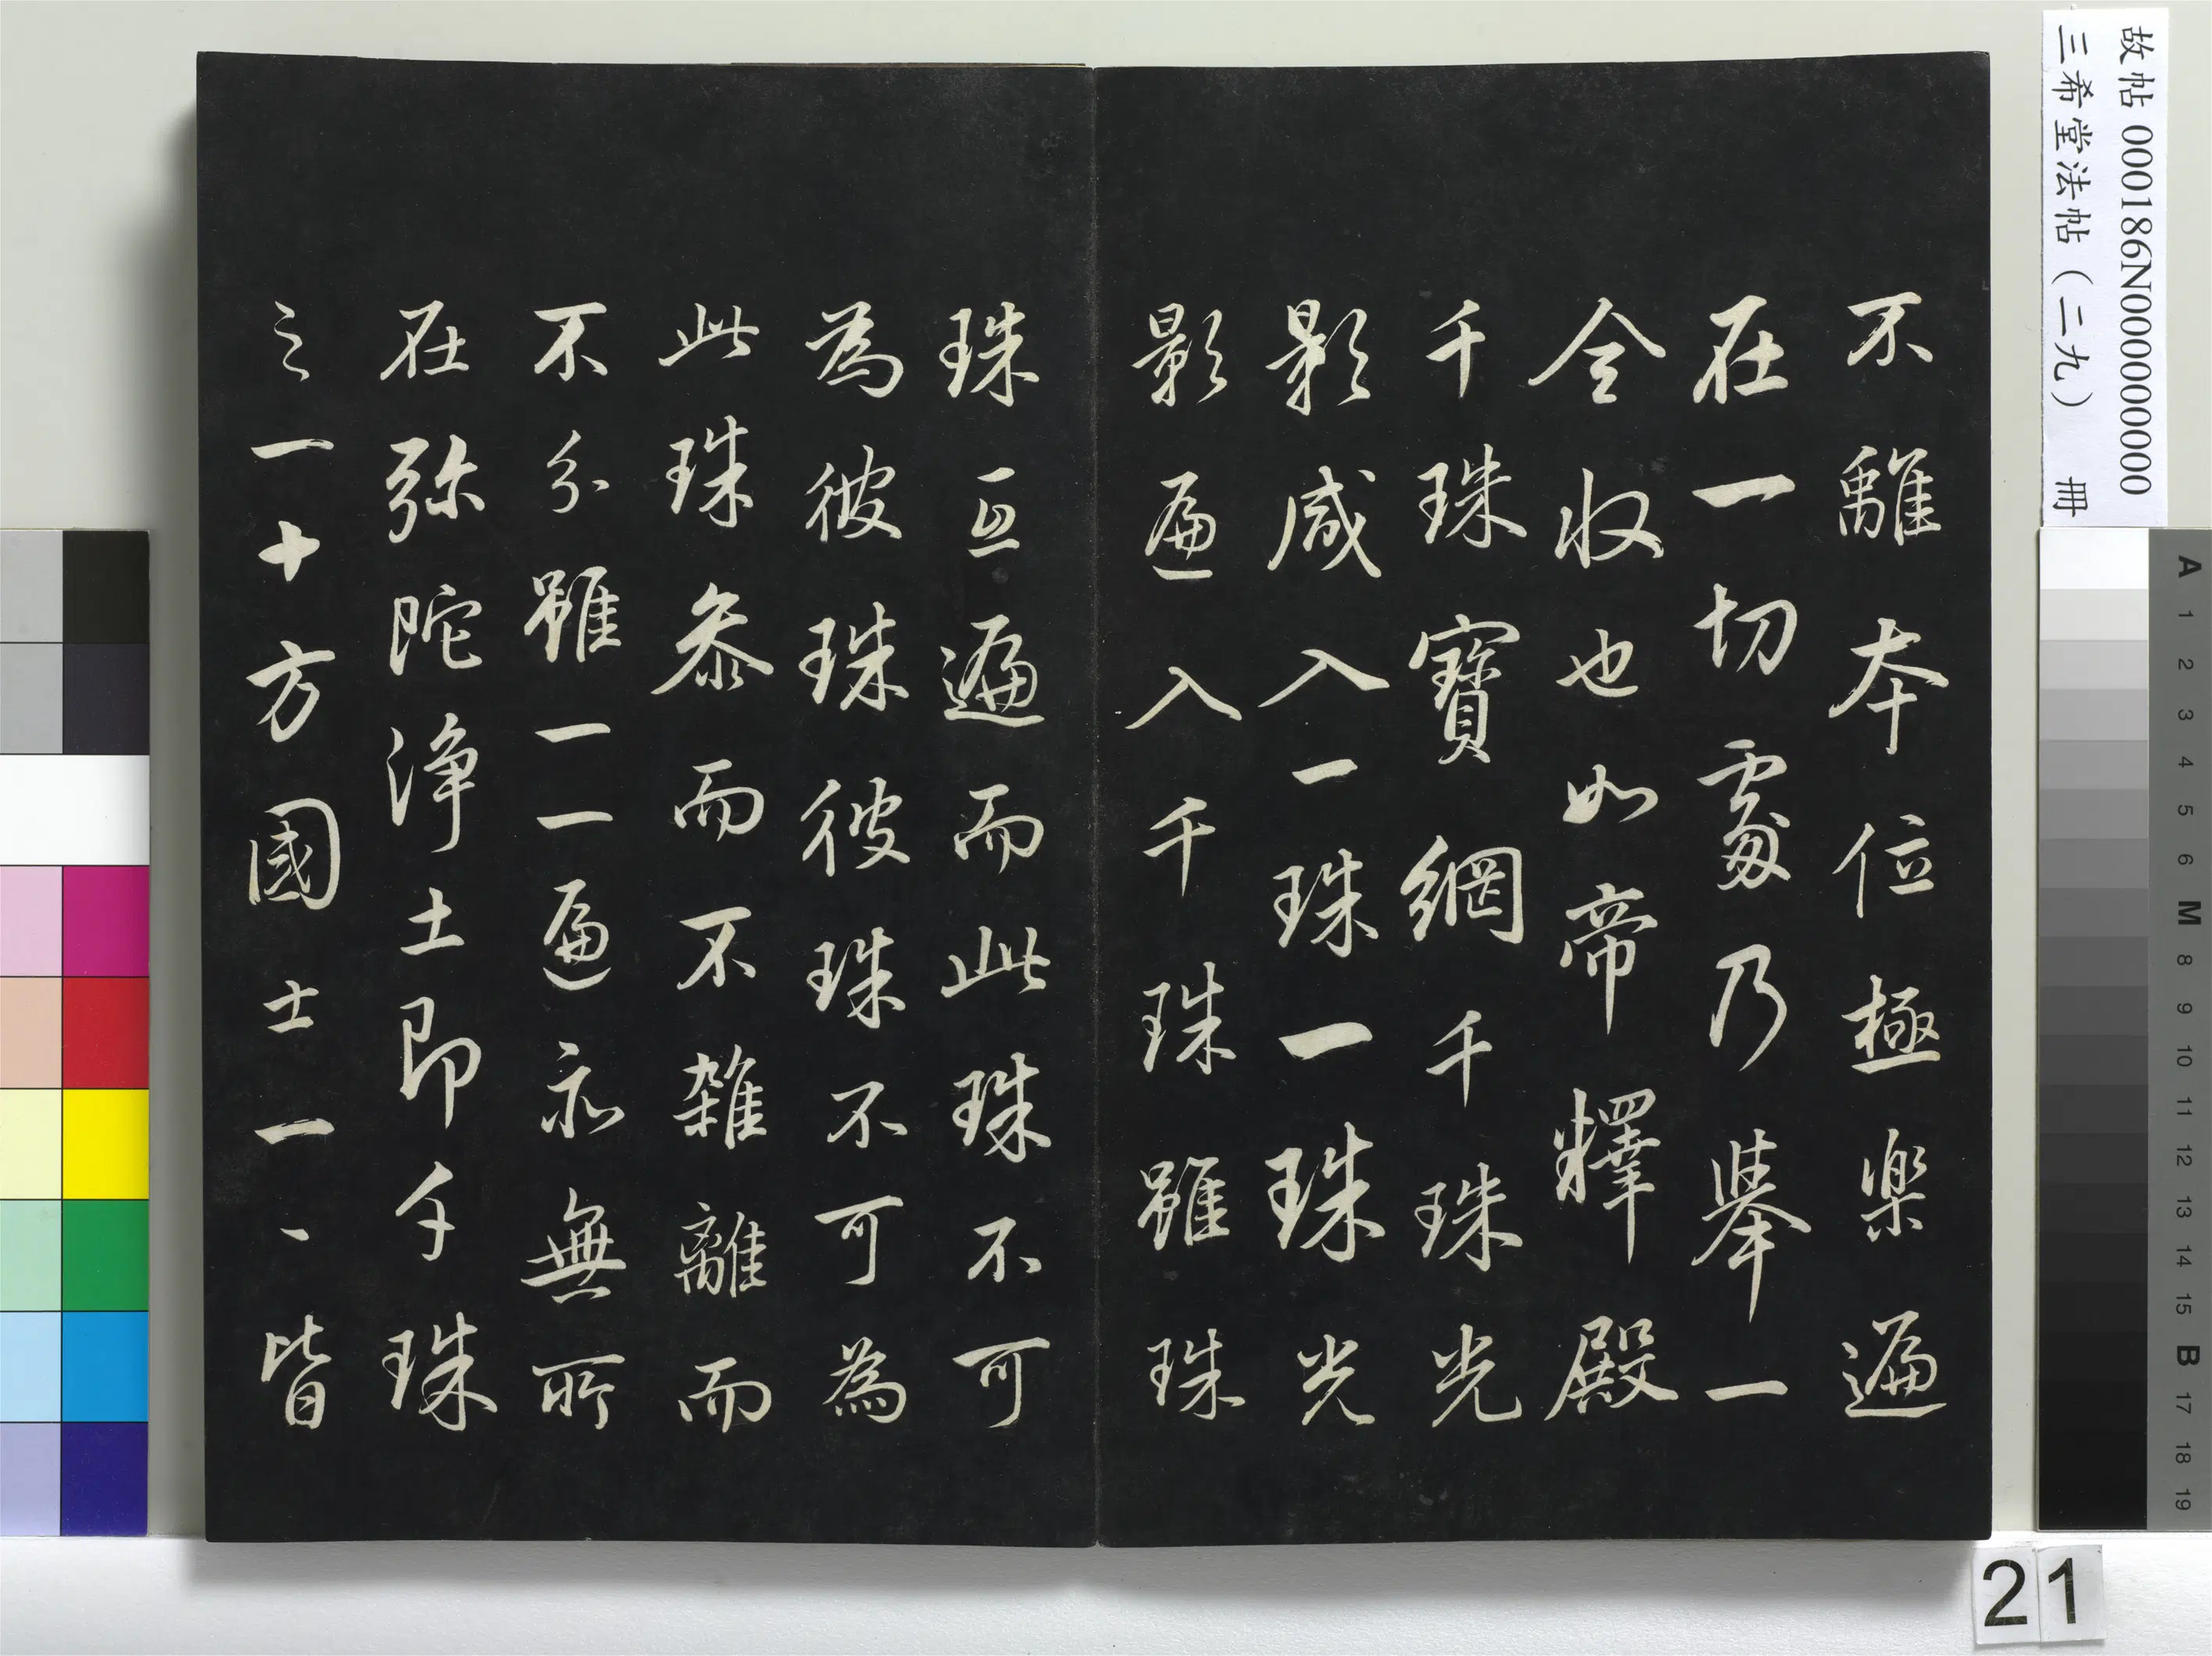 不離本位極樂遍
在一切處乃舉一
全收也如帝釋殿
千珠寶網千珠光
影咸入一珠一珠光
影遍入千珠雖珠
珠互遍而此珠不可
為彼珠彼珠不可為
此珠參而不雜離而
不分雖一一遍亦無所
在弥陀淨土即千珠
之一十方國土一一皆
故帖 000186N000000000
三希堂法帖（二九） 冊
A
1
2
3
4
5
6
M
8
9
10
11
12
13
14
15
B
17
18
19
21